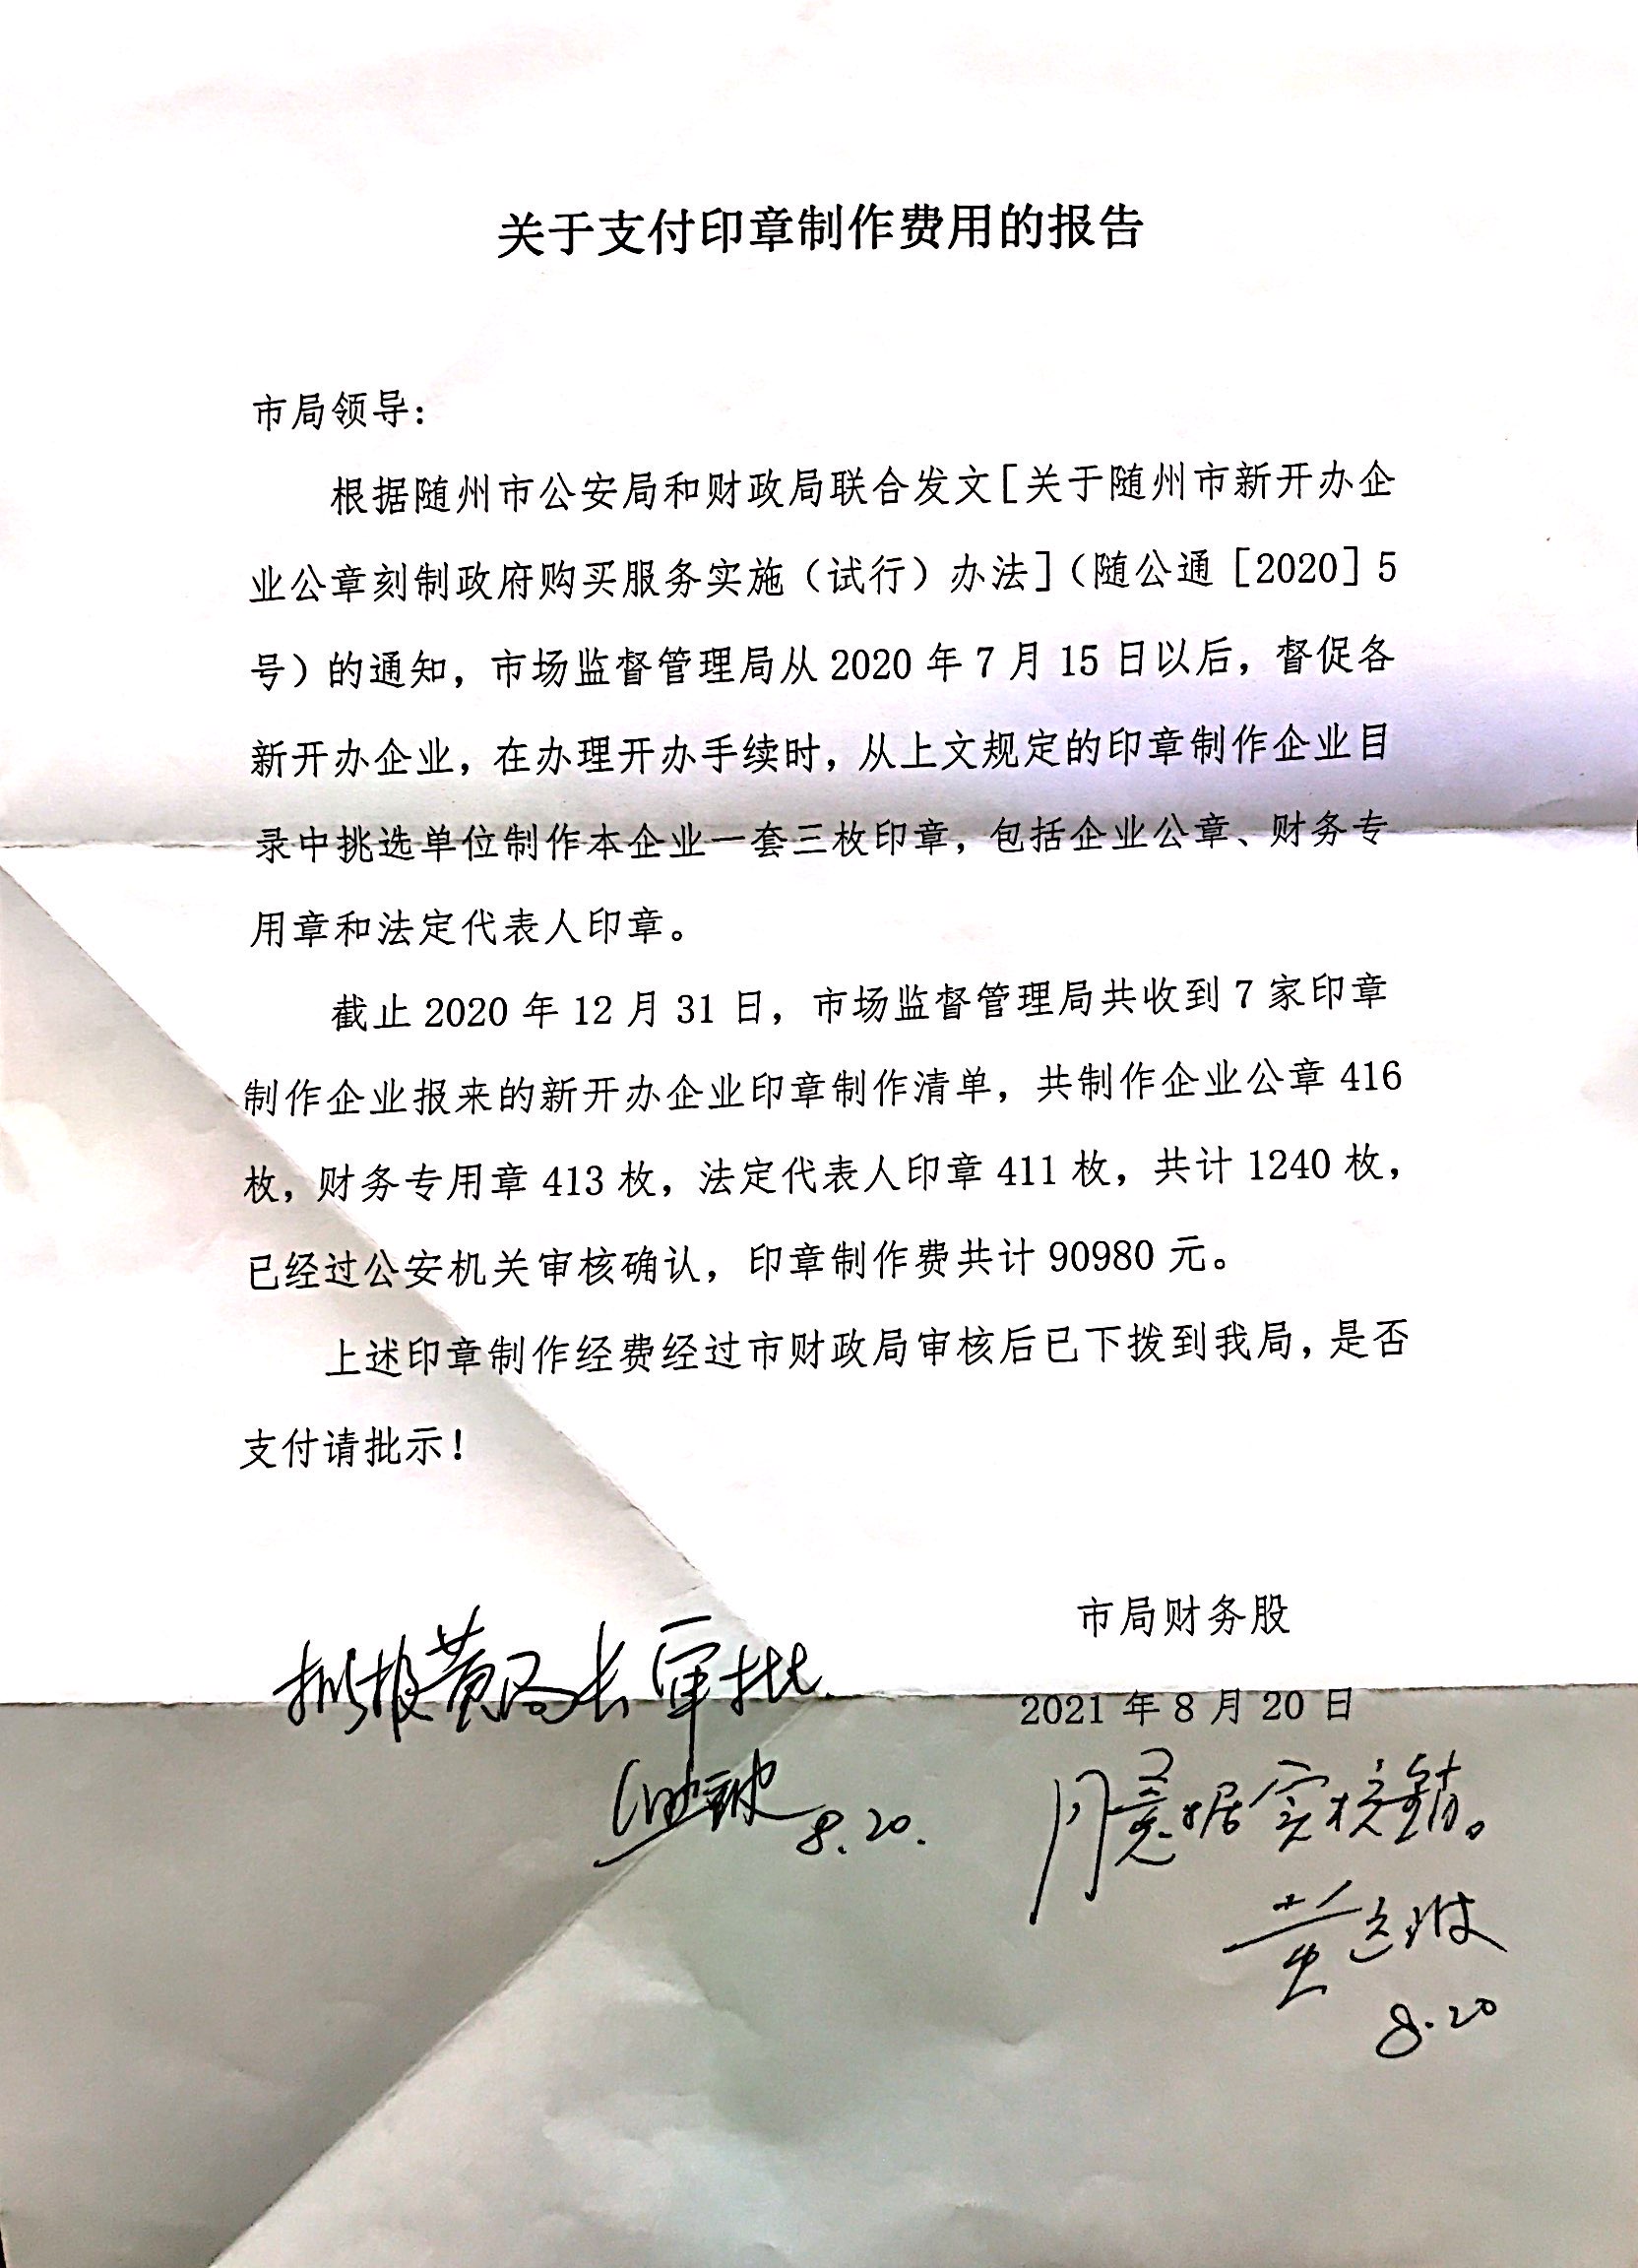 关于支付印章制作费用的报告
市局领导：
根据随州市公安局和财政局联合发文[关于随州市新开办企
业公章刻制政府购买服务实施（试行）办法]（随公通［2020］5
号）的通知，市场监督管理局从 2020 年 7 月 15 日以后，督促各
新开办企业，在办理开办手续时，从上文规定的印章制作企业目
录中挑选单位制作本企业一套三枚印章，包括企业公章、财务专
用章和法定代表人印章。
截止 2020 年 12 月 31 日，市场监督管理局共收到 7 家印章
制作企业报来的新开办企业印章制作清单，共制作企业公章 416
枚，财务专用章 413 枚，法定代表人印章 411 枚，共计 1240 枚，
已经过公安机关审核确认，印章制作费共计 90980 元。
上述印章制作经费经过市财政局审核后已下拨到我局，是否
支付请批示！
市局财务股
拟报黄局长审批.
2021 年 8 月 20 日
8.20.
同意据实核销。
8.20